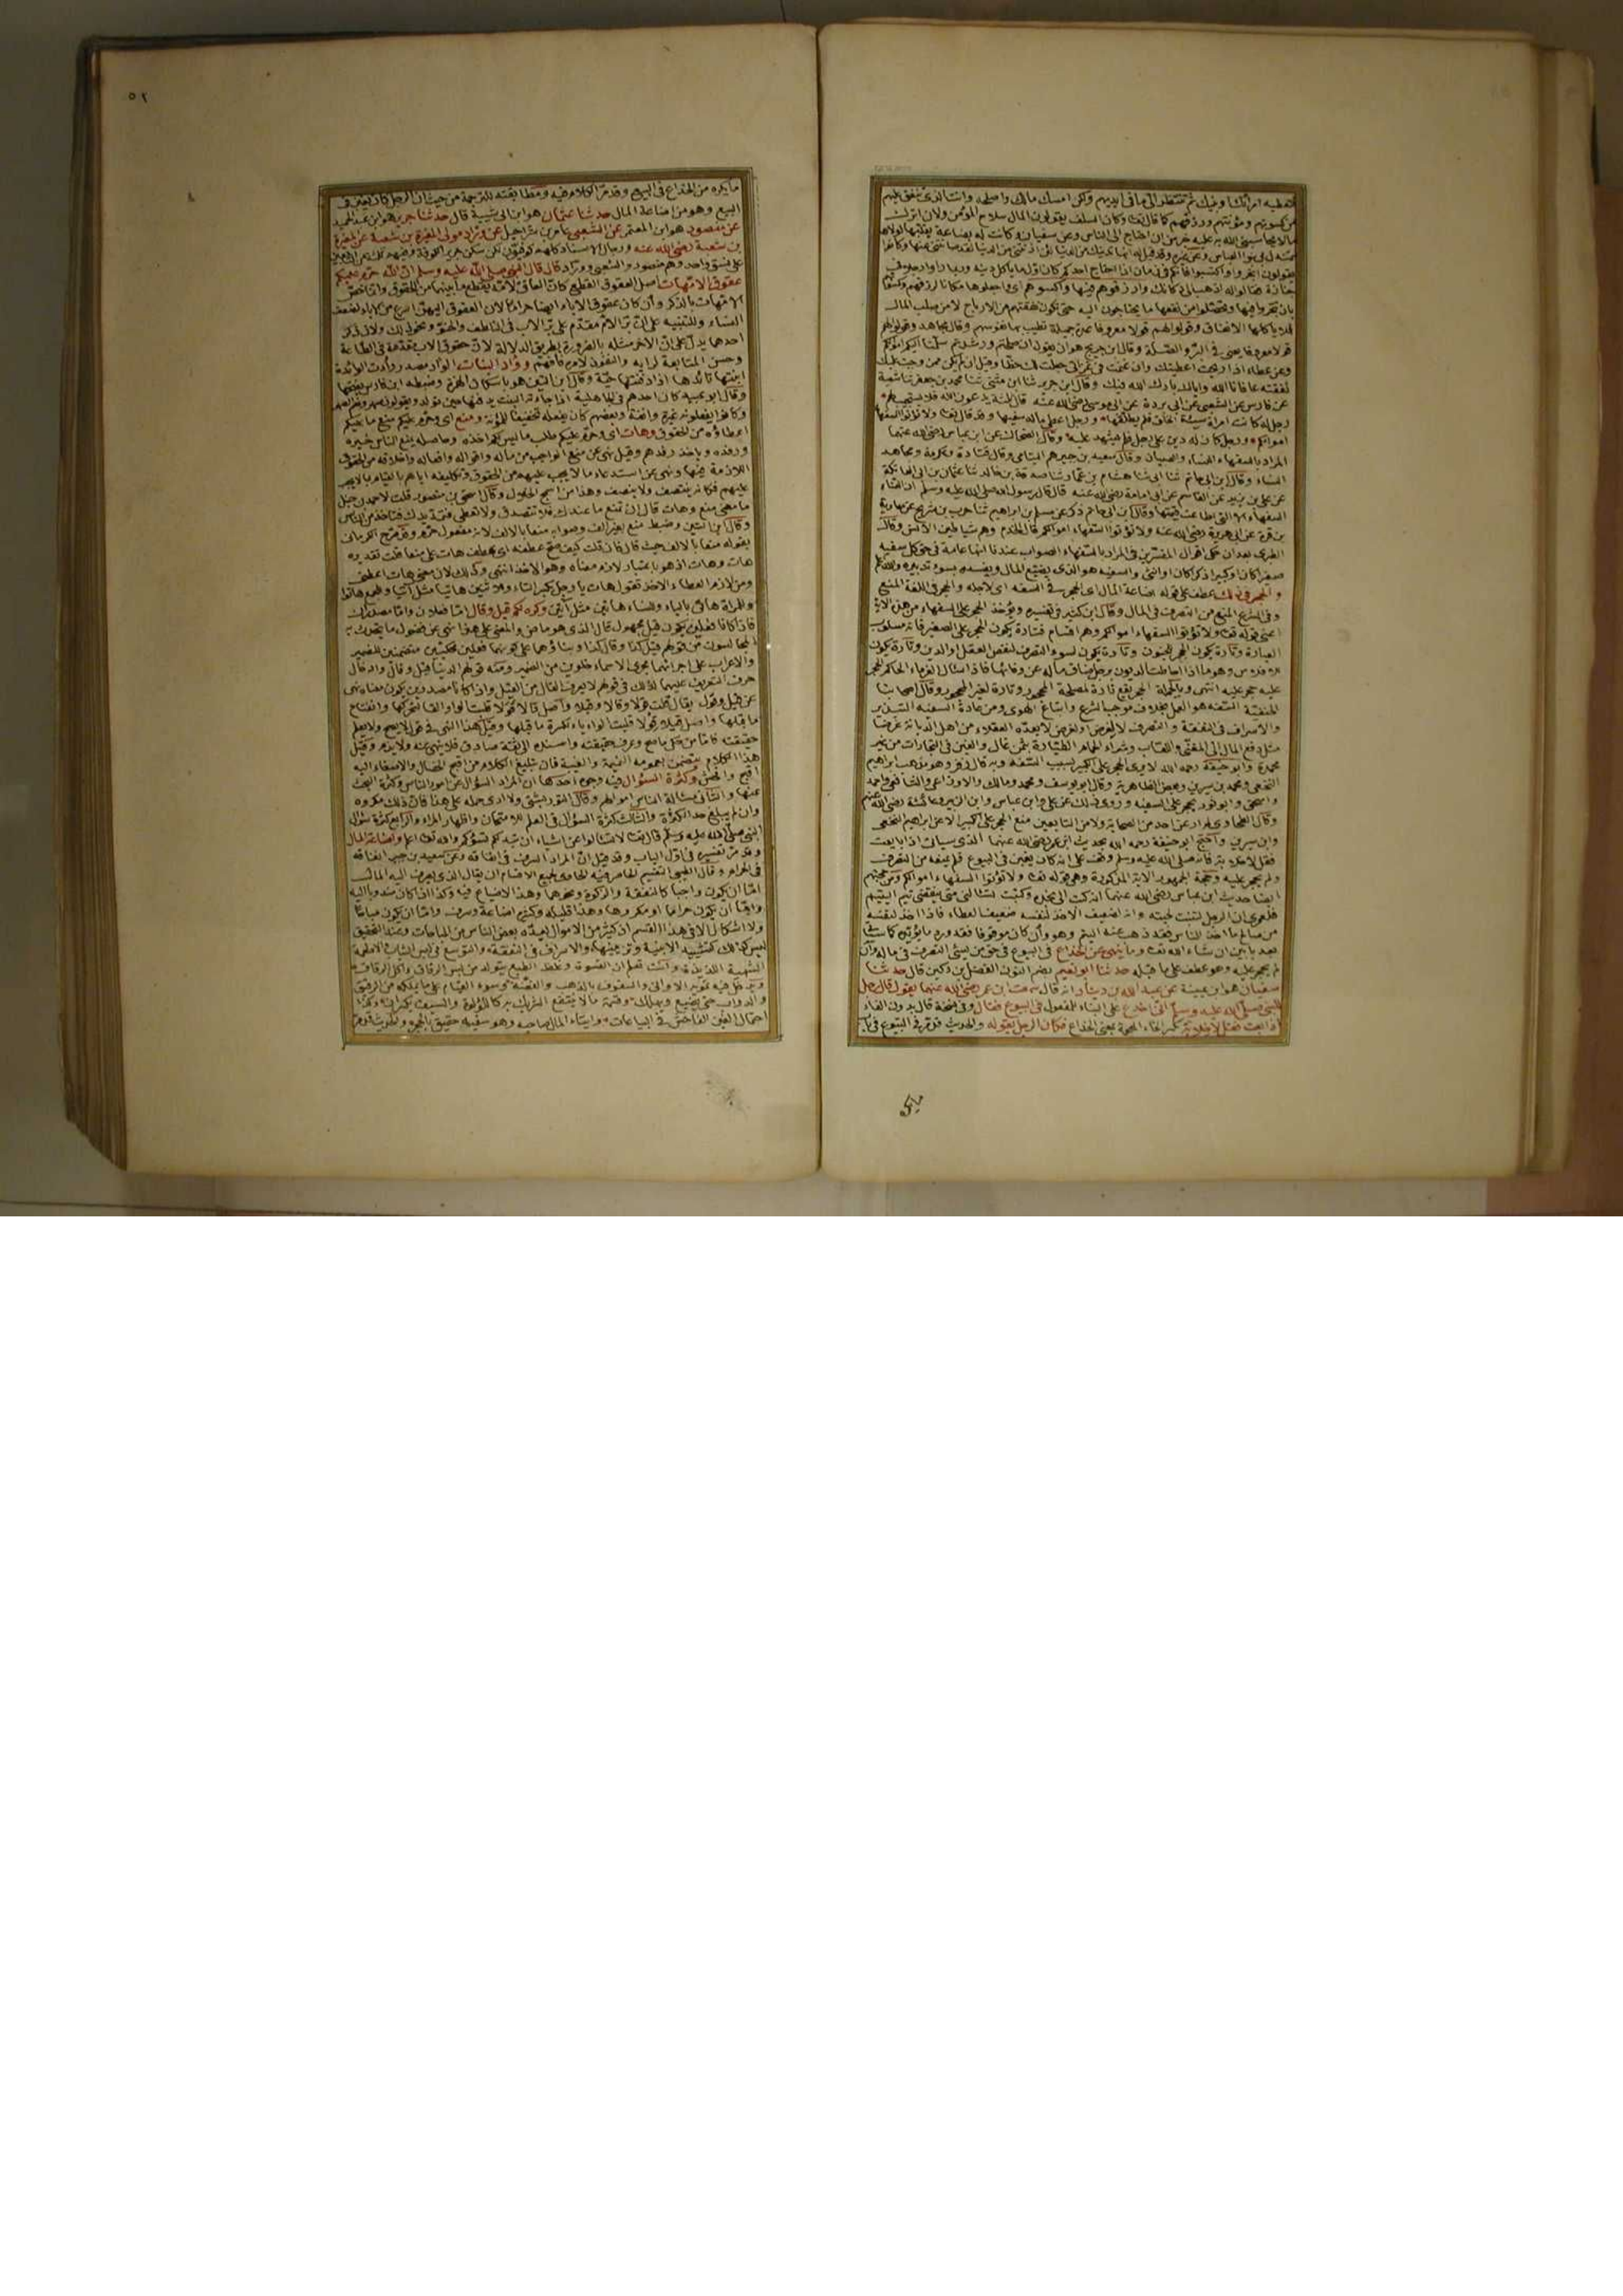 من كسوتهم ومؤنتهم ورزقهم كما قال تعالى وكان السلف يقولون المال سلاح المؤمن ولان اترك
مالا يحاسبني الله عليه خير من ان احتاج الى الناس وعن سفيان وكانت له بضاعة يقلبها لولاها
لتمندل بي بنوا العباس وعن غيره وقد قيل له انها تدنيك من الدنيا لئن ادنتني من الدنيا لقد صانتني عنها وكانوا
يقولون اتجروا واكتسبوا فانكم في زمان اذا احتاج احدكم كان اول ما يأكل دينه وربما راوا رجلا في
جنازة فقالوا له اذهب الى دكانك وارزقوهم فيها واكسوهم اي واجعلوها مكانا لرزقهم وكسوتهم
بان تتجروا فيها وتحصلوا من نفعها ما يحتاجون اليه حتى تكون نفقتهم من الارباح لا من صلب المال
فلا يأكلها الانفاق وقولوا لهم قولا معروفا عدة جميلة تطيب بها نفوسهم وقال مجاهد وقولوا لهم
قولا معروفا يعني في البر والصلة وقال ابن جريج هو ان يقول ان صلحتم ورشدتم سلمنا اليكم اموالكم
وعن عطاء اذا ربحت اعطيتك وان غنمت في غزاتي جعلت لك حظا وقيل ان لم يكن ممن وجبت عليك
نفقته عافانا الله واياك بارك الله فيك وقال ابن جرير ثنا ابن مثنى ثنا محمد بن جعفر ثنا شعبة
عن فارس عن الشعبي عن ابي بردة عن ابي موسى رضي الله عنه قال ثلاثة يدعون الله فلا يستجيب لهم
رجل له كانت امراة سيئة الخلق فلم يطلقها ورجل اعطى ماله سفيها وقد قال تعالى ولا تؤتوا السفهاء
اموالكم ورجل كان له دين على رجل فلم يشهد عليه وقال الضحاك عن ابن عباس رضي الله عنهما
المراد بالسفهاء النساء والصبيان وقال سعيد بن جبير هم اليتامى وقال قتادة وعكرمة ومجاهد
النساء وقال ابن ابي حاتم ثنا ابي ثنا هشام بن عمار ثنا صدقة بن خالد ثنا عثمان بن ابي العاتكة
عن علي بن يزيد عن القاسم عن ابي امامة رضي الله عنه قال قال رسول الله صلى الله عليه وسلم ان النساء
السفهاء الا التي اطاعت قيمها وقال ابن ابي حاتم ذكر عن مسلم بن ابراهيم ثنا حرب بن شريح عن معاوية
بن قرة عن ابي هريرة رضي الله عنه ولا تؤتوا السفهاء اموالكم قال الخدم وهم شياطين الانس وقال
الطبري بعد ان حكى اقوال المفسرين في المراد بالسفهاء الصواب عندنا انها عامة في حق كل سفيه
صغيرا كان او كبيرا ذكرا كان او انثى والسفيه هو الذي يضيع المال ويفسده بسوء تدبيره والله اعلم
والحجر في ذلك عطف على قوله اضاعة المال اي الحجر في السفه اي لاجله والحجر في اللغة المنع
وفي الشرع المنع من التصرف في المال وقال ابن كثير في تفسيره ويؤخذ الحجر على السفهاء من هذه الآية
اعني قوله تعالى ولا تؤتوا السفهاء اموالكم وهم اقسام فتارة يكون الحجر على الصغير فانه مسلوب
العبارة وتارة يكون الحجر للجنون وتارة يكون لسوء التصرف لنقص العقل او الدين وتارة يكون
وهو ما اذا احاطت الديون برجل وضاق ماله عن وفائها فاذا سأل الغرماء الحاكم الحجر
عليه حجر عليه انتهى وبالجملة الحجر يقع تارة لمصلحة المحجور وتارة لغير المحجور وقال اصحابنا
الحنفية السفه هو العمل بخلاف موجب الشرع واتباع الهوى ومن عادة السفيه التبذير
والاسراف في النفقة والتصرف لا لغرض او لغرض لا يعده العقلاء من اهل الديانة غرضا
مثل دفع المال الى المغني واللعاب وشراء الحمام الطيارة بثمن غال والغبن في التجارات من غير
محمدة وابو حنيفة رحمه الله لا يرى الحجر على الكبير بسبب السفه وبه قال زفر وهو مذهب ابراهيم
النخعي ومحمد بن سيرين وبعض الظاهرية وقال ابو يوسف ومحمد ومالك والاوزاعي والشافعي واحمد
واسحق وابو ثور يحجر على السفيه وروي ذلك عن علي وابن عباس وابن الزبير وعائشة رضي الله عنهم
وقال الطحاوي لم ار عن احد من الصحابة ولا من التابعين منع الحجر على الكبير الا عن ابراهيم النخعي
وابن سيرين واحتج ابو حنيفة رحمه الله بحديث ابن عمر رضي الله عنهما الذي سيأتي اذا بايعت
فقل لا خلابة فانه صلى الله عليه وسلم وقف على انه كان يغبن في البيوع فلم يمنعه من التصرف
ولم يحجر عليه وحجة الجمهور الآية المذكورة وهي قوله تعالى ولا تؤتوا السفهاء اموالكم ومن حجتهم
ايضا حديث ابن عباس رضي الله عنهما انه كتب الى نجدة وكتبت تسألني متى ينقضي يتم اليتيم
فلعمري ان الرجل لتنبت لحيته وانه لضعيف الاخذ لنفسه ضعيف العطاء فاذا اخذ لنفسه
من صالح ما اخذ الناس فقد ذهب عنه اليتم وهو وان كان موقوفا فقد ورد ما يؤيده كما سيأتي
بعد بابين ان شاء الله تعالى وما ينهى عن الخداع في البيوع في حق من يسيء التصرف في ماله وان
لم يحجر عليه وهو عطف على ما قبله حدثنا ابو نعيم بضم النون الفضل بن دكين قال حدثنا
سفيان هو ابن عيينة عن عبد الله بن دينار انه قال سمعت ابن عمر رضي الله عنهما يقول قال رجل
للنبي صلى الله عليه وسلم اني اخدع على البناء للمفعول في البيوع فقال وفي نسخة قال بدون الفاء
اذا بايعت فقل لا خلابة بكسر الخاء المعجمة بمعنى الخداع فكان الرجل يقوله والحديث قد مر في البيوع في باب
ما يكره
٥٢
ما يكره من الخداع في البيع وقد مر الكلام فيه ومطابقته للترجمة من حيث ان الرجل كان يغبن في
البيع وهو من اضاعة المال حدثنا عثمان هو ابن ابي شيبة قال حدثنا جرير هو ابن عبد الحميد
عن منصور هو ابن المعتمر عن الشعبي عامر بن شراحيل عن وراد مولى المغيرة بن شعبة عن المغيرة
بن شعبة رضي الله عنه ورجال الاسناد كلهم كوفيون لكن سكن جرير الكوفة
على نسق واحد وهم منصور والشعبي ووراد قال قال النبي صلى الله عليه وسلم ان الله حرم عليكم
عقوق الامهات اصل العقوق القطع كان العاق لامه يقطع ما بينهما من الحقوق وانما خص
الامهات بالذكر وان كان عقوق الآباء ايضا حراما لان العقوق اليهن اسرع من الآباء لضعف
النساء وللتنبيه على ان بر الام مقدم على بر الاب في التلطف والحنو ونحو ذلك ولان ذكر
احدهما يدل على ان الاخر مثله بالضرورة بطريق الدلالة لان حقوق الاب مقدمة في الطاعة
وحسن المتابعة لرايه والنفوذ لامره فافهم ووأد البنات الوأد مصدر وأدت الوائدة
ابنتها تئدها اذا دفنتها حية وقال ابن التين هو باسكان الهمزة وضبطه ابن فارس بفتحها
وقال ابو عبيد كان احدهم في الجاهلية اذا جاءته البنت يدفنها حين تولد
وكانوا يفعلونه غيرة وانفة وبعضهم كان يفعله تخفيفا للمؤنة ومنع اي وحرم عليكم منع ما عليكم
اعطاؤه من الحقوق وهات اي وحرم عليكم طلب ما ليس لكم اخذه وحاصله يمنع الناس خيره
ورفده ويأخذ رفدهم وقيل نهى عن منع الواجب من ماله واقواله وافعاله واخلاقه من الحقوق
اللازمة فيها ونهى عن استدعاء ما لا يجب عليهم من الحقوق وتكليفه اياهم بالقيام بما لا يجب
عليهم فكانه ينتصف ولا ينصف وهذا من اسمج الخلال وقال اسحق بن منصور قلت لاحمد بن حنبل
ما معنى منع وهات قال ان تمنع ما عندك فلا تتصدق ولا تعطي فتمد يدك فتأخذ من الناس
وقال ابن التين وضبط منع بغير الف وصوابه منعا بالالف لانه مفعول حرم وقد صرح الكرماني
بقوله منعا بالالف حيث قال فان قلت كيف صح عطفه اي عطف هات على منعا قلت تقديره
هات وهات اذ هو باعتبار لازم معناه وهو الاخذ انتهى وذلك لان معنى هات اعطني
ومن لازم العطاء الاخذ تقول هات يا رجل بكسر التاء وللاثنين هاتيا مثل آتيا وللجمع هاتوا
وللمراة هاتي بالياء وللنساء هاتين مثل آتين وكره لكم قيل وقال اما فعلان واما مصدران
فاذا كانا فعلين يكون قيل مجهول قال الذي هو ماض والمعنى على هذا نهى عن فضول ما يتحدث به
المجالسون من قولهم قيل كذا وقال كذا وبناؤهما على كونهما فعلين محكيين متضمنين للضمير
والاعراب على اجرائهما مجرى الاسماء خلوين من الضمير ومنه قولهم الدنيا قيل وقال وادخال
حرف التعريف عليهما لذلك في قولهم لا يعرف القال من القيل واذا كانا مصدرين يكون معناه نهى
عن قيل وقول يقال قلت قولا وقالا وقيلا واصل قالا قولا قلبت الواو الفا لتحركها وانفتاح
ما قبلها واصل قيلا قولا قلبت الواو ياء لكسرة ما قبلها وقيل هذا النهي في قول لا يصح ولا يعلم
حقيقته فاما من حكى ما صح وعرف حقيقته واسنده الى ثقة صادق فلا نهي عنه ولا ذم وقيل
هذا الكلام يتضمن بعمومه النميمة والغيبة فان تبليغ الكلام من اقبح الخصال والاصغاء اليه
اقبح وافحش وكثرة السؤال فيه وجوه احدها ان المراد السؤال عن امور الناس وكثرة البحث
عنها والثاني مسألة الناس اموالهم وقال التوربشتي ولا ارى حمله على هذا فان ذلك مكروه
وان لم يبلغ حد الكثرة والثالث كثرة السؤال في العلم للامتحان واظهار المراء والرابع كثرة سؤال
النبي صلى الله عليه وسلم قال تعالى لا تسألوا عن اشياء ان تبد لكم تسؤكم والله تعالى اعلم واضاعة المال
وقد مر تفسيره في اول الباب وقد قيل ان المراد السرف في انفاقه وعن سعيد بن جبير انفاقه
في الحرام وقال الطيبي التقسيم الحاصر فيه الحاوي لجميع الاقسام ان يقال الذي يصرف اليه المال
اما ان يكون واجبا كالنفقة والزكوة ونحوهما وهذا لا ضياع فيه وكذا ان كان مندوبا اليه
واما ان يكون حراما او مكروها وهذا قليله وكثيره اضاعة وسرف واما ان يكون مباحا
ولا اشكال الا في هذا القسم اذ كثير من الامور يعده بعض الناس من المباحات وعند التحقيق
ليس كذلك كتشييد الابنية وتزيينها والاسراف في النفقة والتوسع في لبس الثياب والاطعمة
الشهية اللذيذة وانت تعلم ان القسوة وغلظ الطبع يتولد من لبس الرقاق واكل الرقاق
ويدخل فيه تمويه الاواني والسقوف بالذهب والفضة وسوء القيام على ما يملكه من الرقيق
والدواب حتى يضيع ويهلك وقسمة ما لا ينتفع الشريك به كاللؤلؤة والسيف يكسران وكذا
احتمال الغبن الفاحش في البياعات وايتاء المال صاحبه وهو سفيه حقيق بالحجر والحديث قد مر